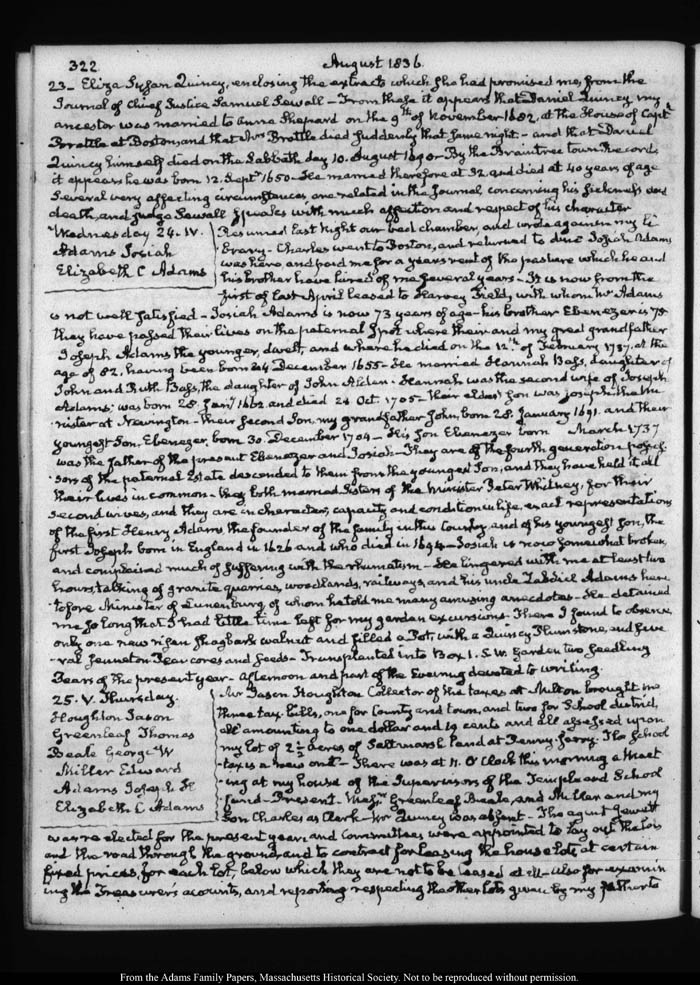 322
August 1836.
23- Eliza Susan Quincy, enclosing the extracts which she had promised me, from the
Journal of Chief Justice Samuel Sewall - From these it appears that Daniel Quincy my
ancestor was married to Anna Shepard on the 9th of November 1682, at the House of Captn
Brattle at Boston, and that Mrs Brattle died suddenly that same night - and that Daniel
Quincy himself died on the Sabbath day 10. August 1690 - By the Braintree town Records
it appears he was born 12. Septr 1650 - He married therefore at 32 and died at 40 years of age
Several very affecting circumstances are related in the Journal concerning his sickness and
death, and Judge Sewall speaks with much affection and respect of his character
Wednesday 24. IV.
Adams Josiah
Elizabeth C Adams
Resumed last Night our bed chamber, and wrote again in my Li-
brary - Charles went to Boston, and returned to dine Josiah Adams
was here, and paid me for a years rent of the pasture which he and
his brother have hired of me several years - It is now from the
first of last April leased to Harvey Field, with whom Mr Adams
is not well satisfied - Josiah Adams is now 73 years of age - his brother Ebenezer is 78
they have passed their lives on the paternal spot where their and my great grandfather
Joseph Adams the younger, dwelt, and where he died on the 12th of February 1737, at the
age of 82, having been born 24 December 1655 - He married Hannah Bass, daughter of
John and Ruth Bass, the daughter of John Alden - Hannah was the second wife of Joseph
Adams; was born 22 Jany 1662 and died 24 Oct 1705 - Their eldest Son was Joseph the Mi-
nister at Newington - their Second Son, my grandfather John, born 28. January 1691. and their
youngest Son, Ebenezer, born 30. December 1704 - His Son Ebenezer born March 1737
was the father of the present Ebenezer and Josiah - They are of the fourth generation posses-
sors of the paternal Estate descended to them from the youngest Son, and they have held it all
their lives in common - they both married Sisters of the Minister Peter Whitney, for their
second wives, and they are in character, capacity and condition in life, exact representations
of the first Henry Adams, the founder of the family in this Country, and of his youngest Son, the
first Joseph born in England in 1626 and who died in 1694 - Josiah is now somewhat broken,
and complained much of suffering with the rheumatism - He lingered with me at least two
hours, talking of granite quarries, woodlands, railways, and his uncle Zabdiel Adams here-
tofore Minister of Lunenburg of whom he told me many amusing anecdotes - He detained
me so long that I had little time left for my garden excursions - There I found to observe
only one new risen shagbark walnut and filled a Pot, with a Quincy Plumstone, and seve-
ral Pear cores and seeds - Transplanted into Box 1. S.W. Garden two seedling
Pears of the present year - Afternoon and part of the Evening devoted to writing
25. V. Thursday.
Houghton Jason
Greenleaf Thomas
Beale George W
Miller Edward
Adams Joseph H
Elizabeth C Adams
Mr Jason Houghton Collector of the taxes at Milton brought me
three tax bills, one for County and town, and two for School district,
all amounting to one dollar and 19 cents and all assessed upon
my lot of 2½ acres of Saltmarsh land at Penny ferry. The School
tax is a new one - There was at 11. O'Clock this morning a Meet-
ing at my house of the Supervisors of the Temple and School
fund - Present. Messrs Greenleaf Beale, and Miller and my
Son Charles as Clerk - Mr Quincy was absent - The agent
were re elected for the present year, and Committees were appointed to lay out the lots
and the road through the ground, and to contract for leasing the house lots, at certain
fixed prices, for each lot, below which they are not to be leased at all - also for examin-
ing the Treasurer's accounts, and reporting respecting the other lots given by my father to
From the Adams Family Papers, Massachusetts Historical Society. Not to be reproduced without permission.